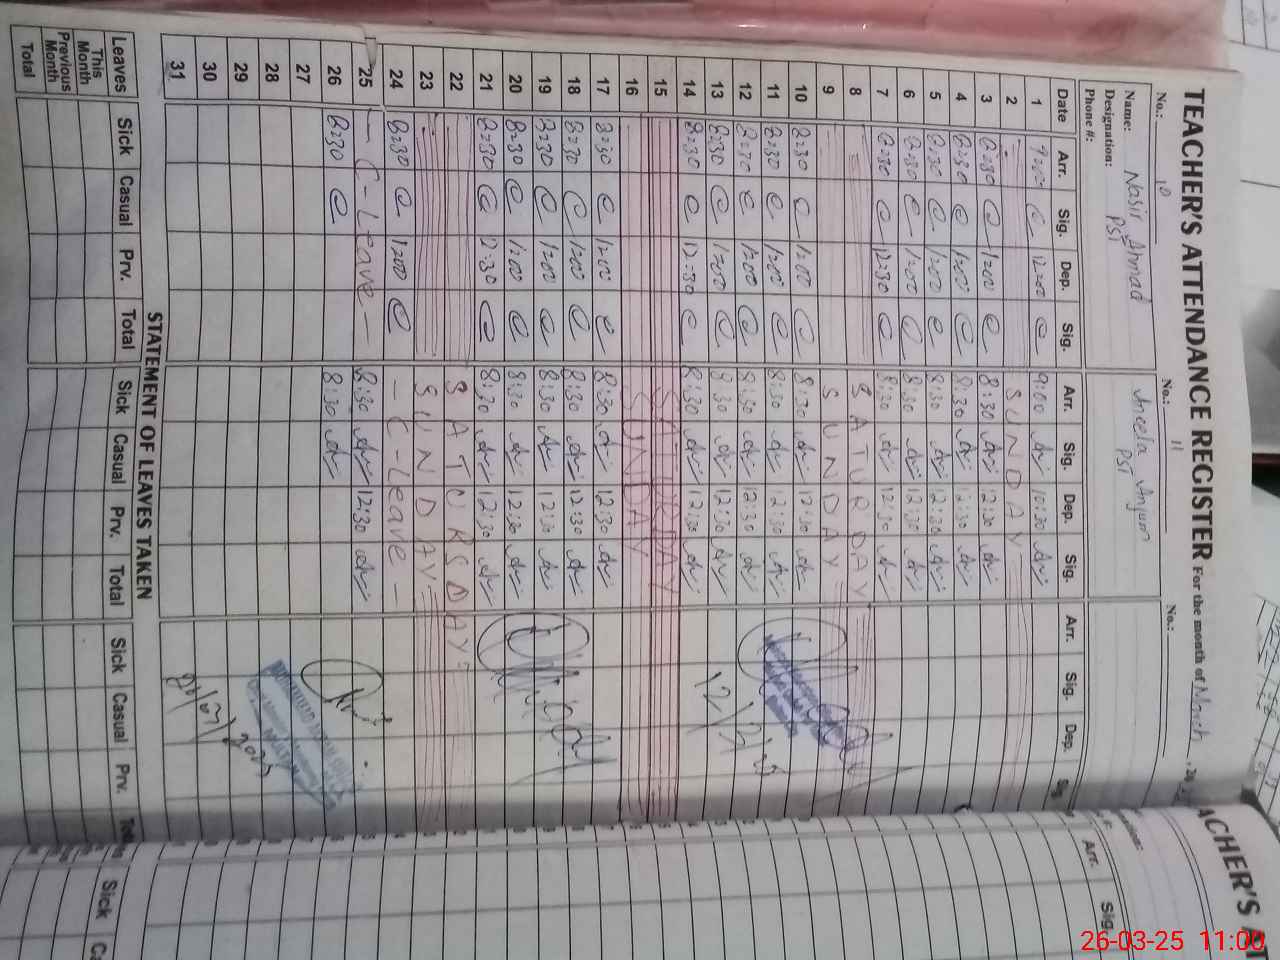 TEACHER'S ATTENDANCE REGISTER For the month of March
No.: 10 No.: 11 No.:
Name: Nasir Ahmad Aneela Anjum
Designation: PST PST
Phone #:
Date Arr. Sig. Dep. Sig. Arr. Sig. Dep. Sig. Arr. Sig. Dep.
1 9:00 12:00 9:00 10:30
2 SUNDAY
3 8:30 1200 8:30 12:30
4 8:30 1200 8:30 12:30
5 8:30 1200 8:30 12:30
6 8:30 1200 8:30 12:30
7 8:30 12:30 8:30 12:30
8 SATURDAY
9 SUNDAY
10 8:30 1200 8:30 12:30
11 8:30 1200 8:30 12:30
12 8:30 1200 8:30 12:30
13 8:30 1200 8:30 12:30
14 8:30 12:30 8:30 12:30
15 SATURDAY
16 SUNDAY
17 8:30 1200 8:30 12:30
18 8:30 1200 8:30 12:30
19 8:30 1200 8:30 12:30
20 8:30 1200 8:30 12:30
21 8:30 12:30 8:30 12:30
22 SATURSDAY
23 SUNDAY
24 8:30 1200 - C-Leave -
25 - C-Leave - 8:30 12:30
26 8:30 8:30
27
28
29
30
31
STATEMENT OF LEAVES TAKEN
Leaves Sick Casual Prv. Total Sick Casual Prv. Total Sick Casual Prv.
This Month
Previous Month
Total
ACHER'S AT
Arr. Sig.
Sick
26-03-25 11:00